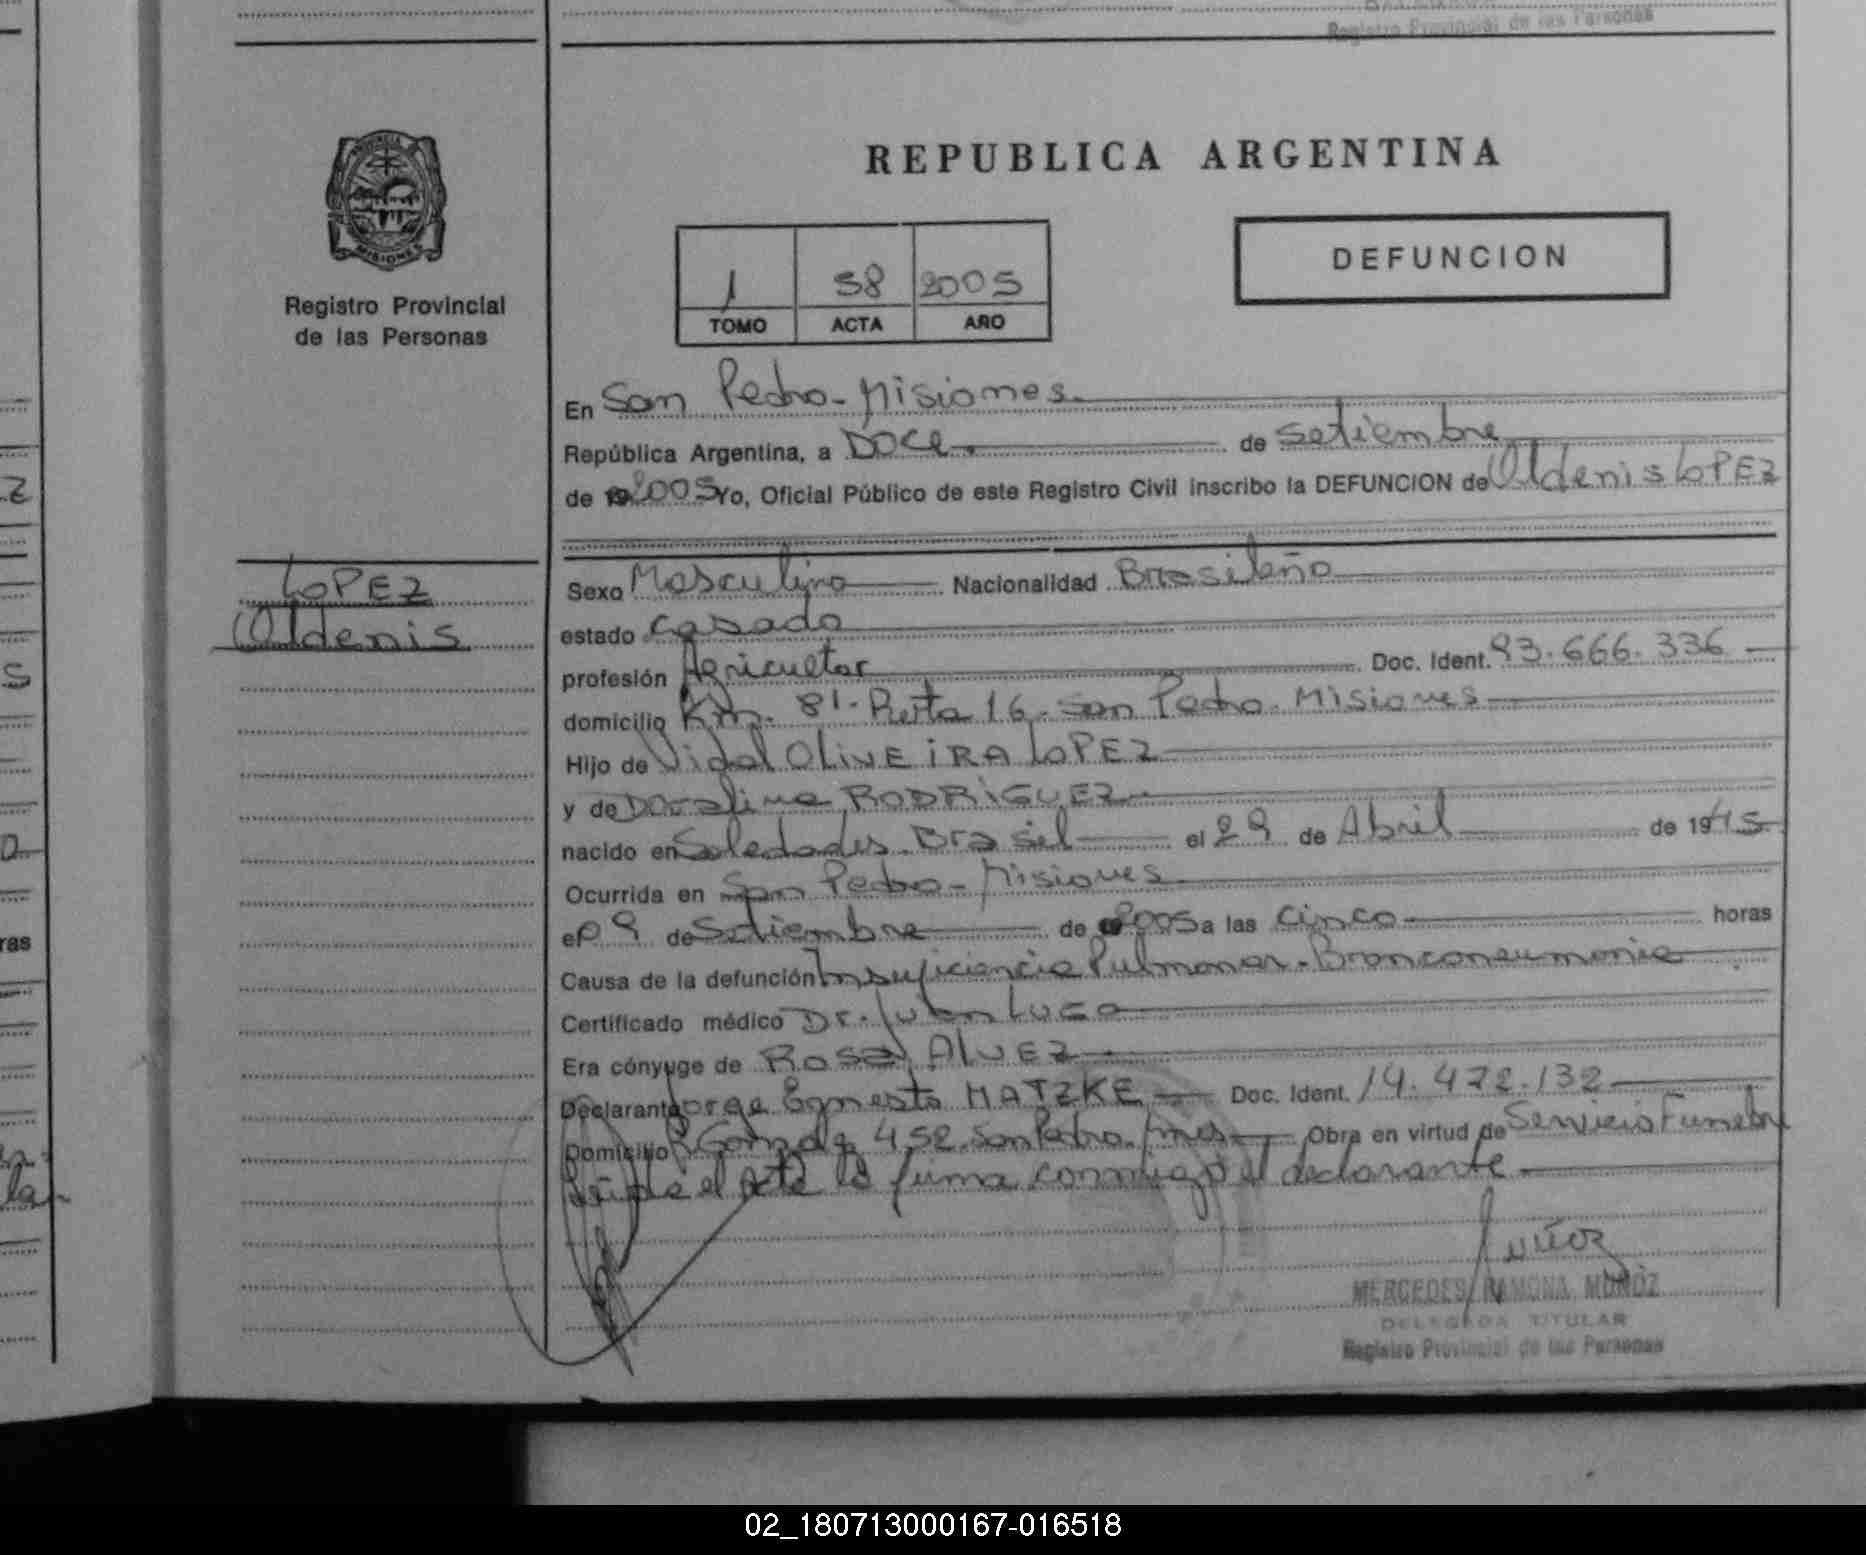 Registro Provincial de las Personas
PROVINCIA
MISIONES
Registro Provincial
de las Personas
REPUBLICA ARGENTINA
1 58 2005
TOMO ACTA AÑO
DEFUNCION
En San Pedro - Misiones.
República Argentina, a Doce. de Setiembre
de 2005 Yo, Oficial Público de este Registro Civil inscribo la DEFUNCION de Oldenis LOPEZ
LOPEZ
Oldenis
Sexo Masculino Nacionalidad Brasileño
estado casado
profesión Agricultor Doc. Ident. 93.666.336
domicilio Km. 81. Ruta 16. San Pedro. Misiones
Hijo de Vidal OLIVEIRA LOPEZ
y de Doralina RODRIGUEZ
nacido en Soledades. Brasil el 29 de Abril de 1945
Ocurrida en San Pedro - Misiones
el 09 de Setiembre de 2005 a las cinco horas
Causa de la defunción Insuficiencia Pulmonar. Bronconeumonia
Certificado médico Dr. Juan Lugo
Era cónyuge de Rosa ALVEZ
Declarante Jorge Ernesto MATZKE Doc. Ident. 14.472.132
Domicilio 452. San Pedro. Mnes Obra en virtud de Servicio Funebre
el Acta la firma conmigo el declarante
Muñoz
MERCEDES RAMONA MUÑOZ
DELEGADA TITULAR
Registro Provincial de las Personas
02_180713000167-016518